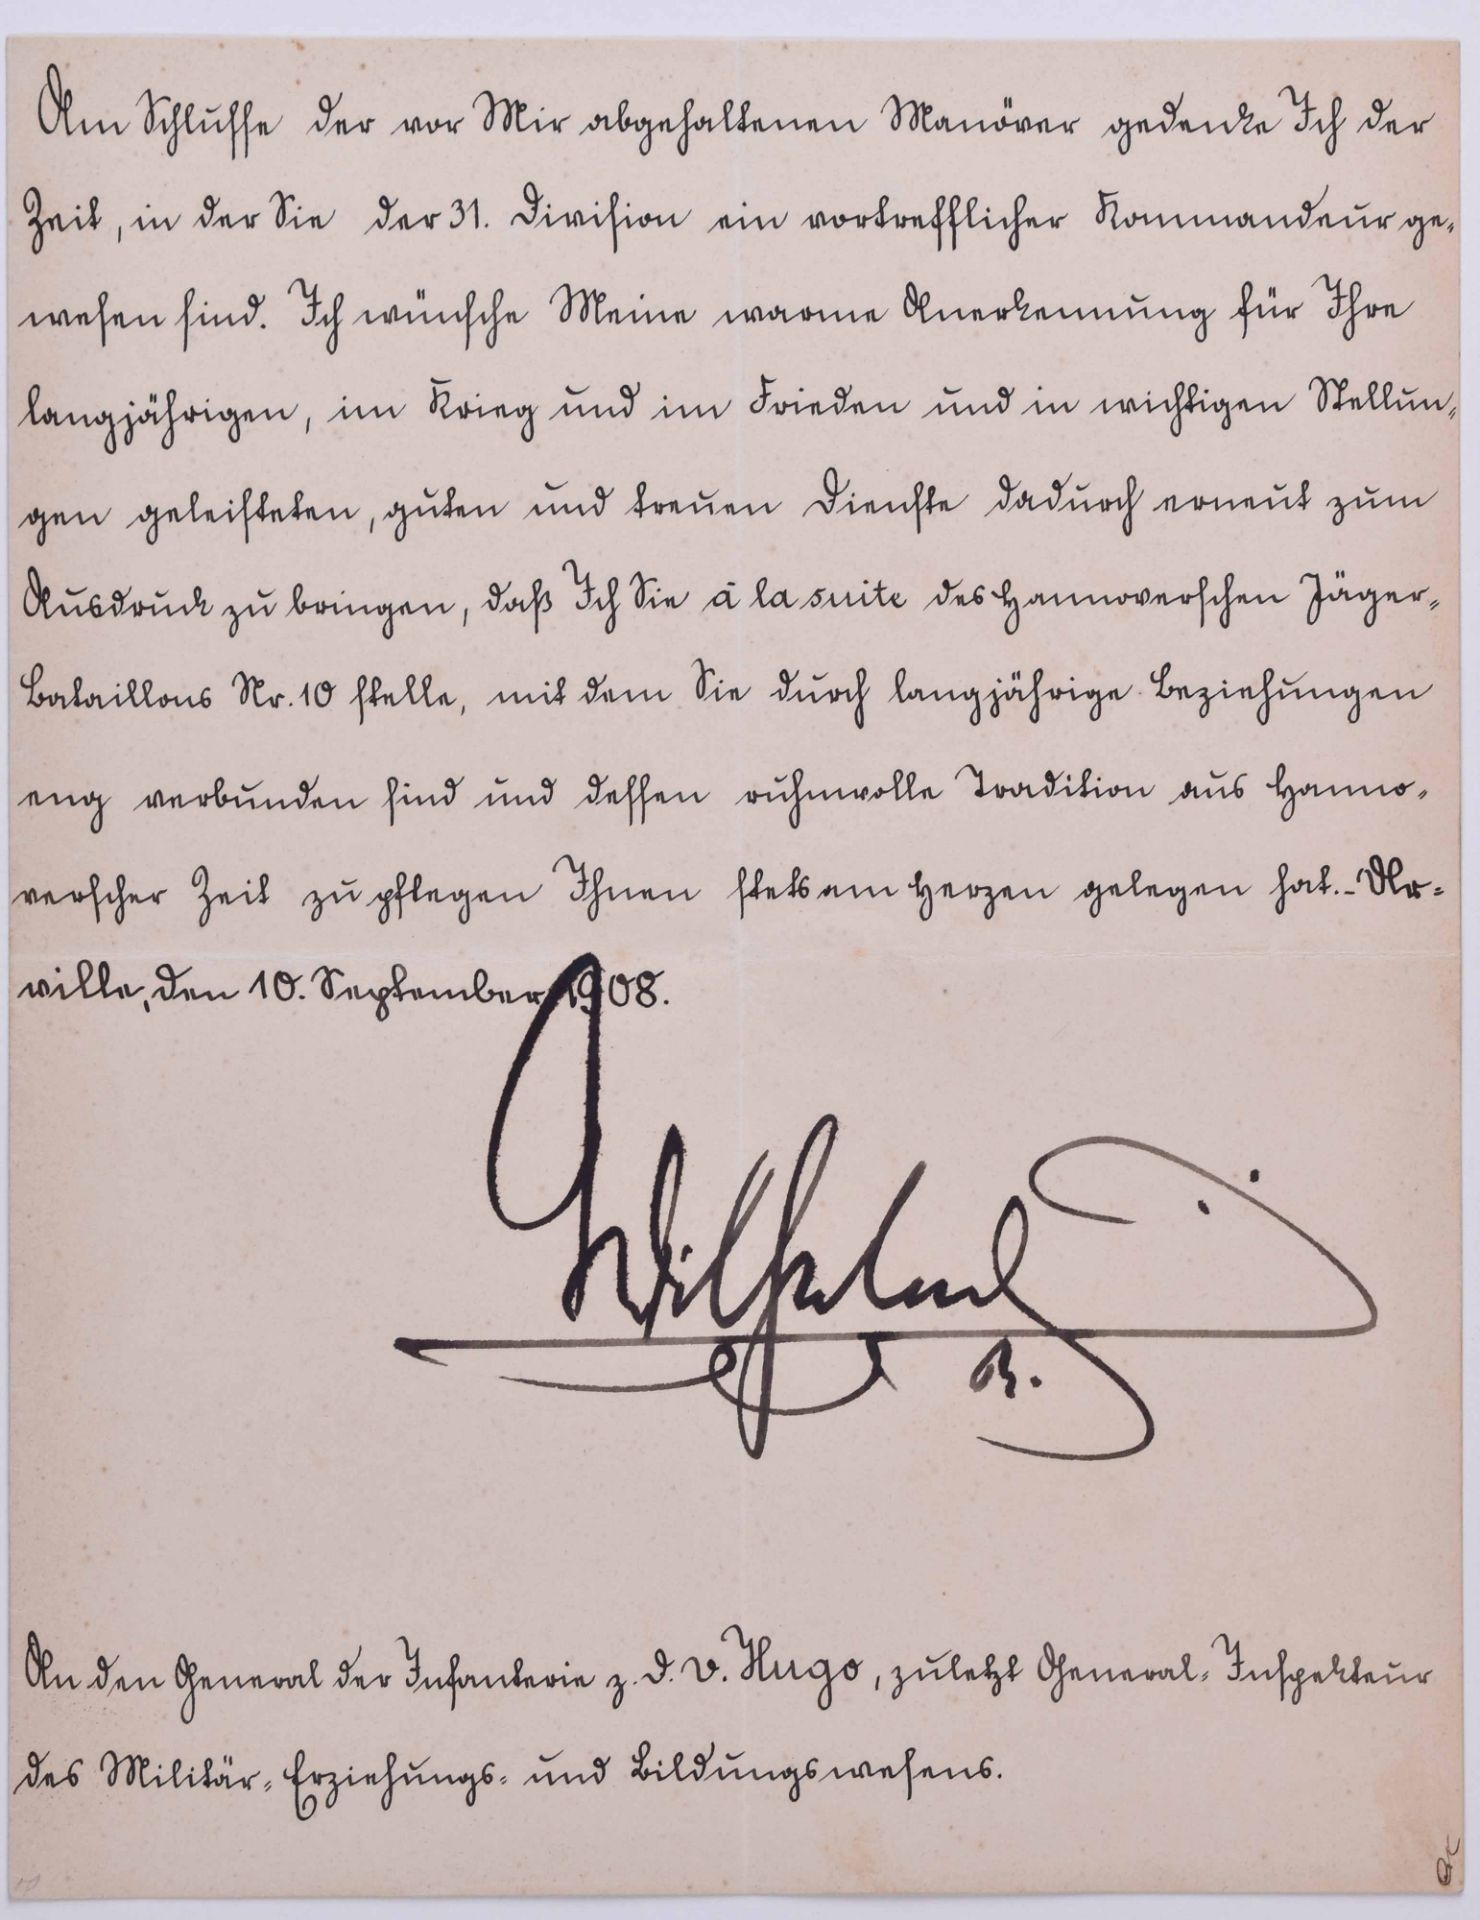 Am Schlusse der vor Mir abgehaltenen Manöver gedenke Ich der
Zeit, in der Sie der 31. Division ein vortrefflicher Kommandeur ge-
wesen sind. Ich wünsche Meine warme Anerkennung für Ihre
langjährigen, im Krieg und im Frieden und in wichtigen Stellun-
gen geleisteten, guten und treuen Dienste dadurch erneut zum
Ausdruck zu bringen, daß Ich Sie à la suite des Hannoverschen Jäger-
Bataillons Nr. 10 stelle, mit dem Sie durch langjährige Beziehungen
eng verbunden sind und dessen ruhmvolle Tradition aus Hanno-
verscher Zeit zu pflegen Ihnen stets am Herzen gelegen hat. - Ur-
ville, den 10. September 1908.
Wilhelm
R.
An den General der Infanterie z. D. v. Hugo, zuletzt General-Inspekteur
des Militär-Erziehungs- und Bildungswesens.